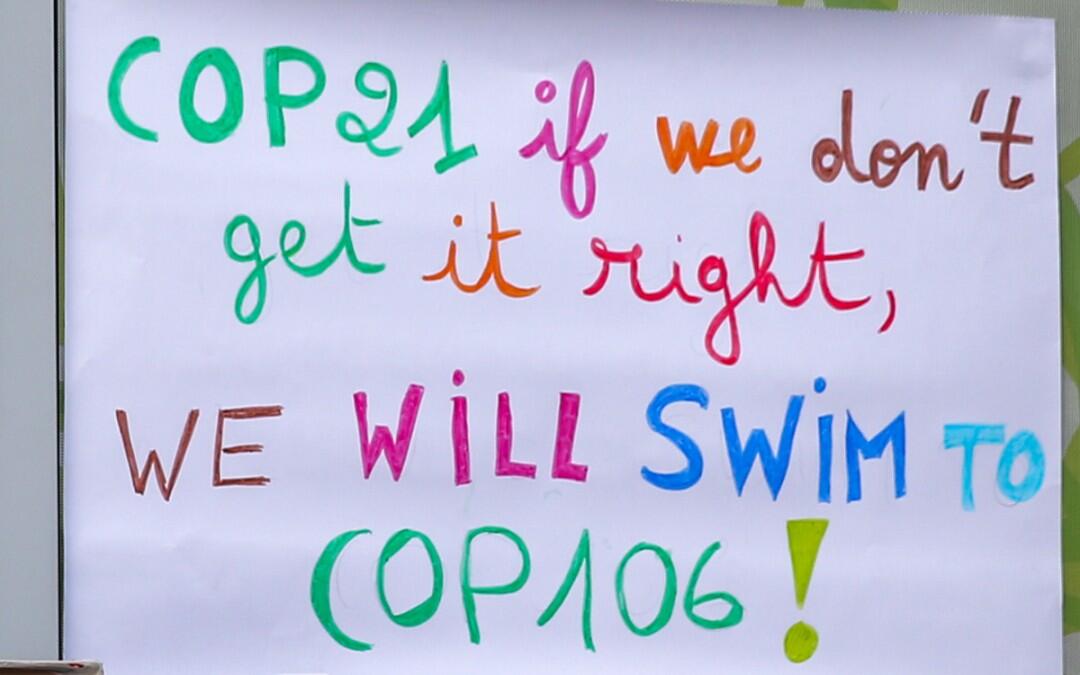 COP21 if we don't
get it right,
WE WiLL SWiM TO
COP106!